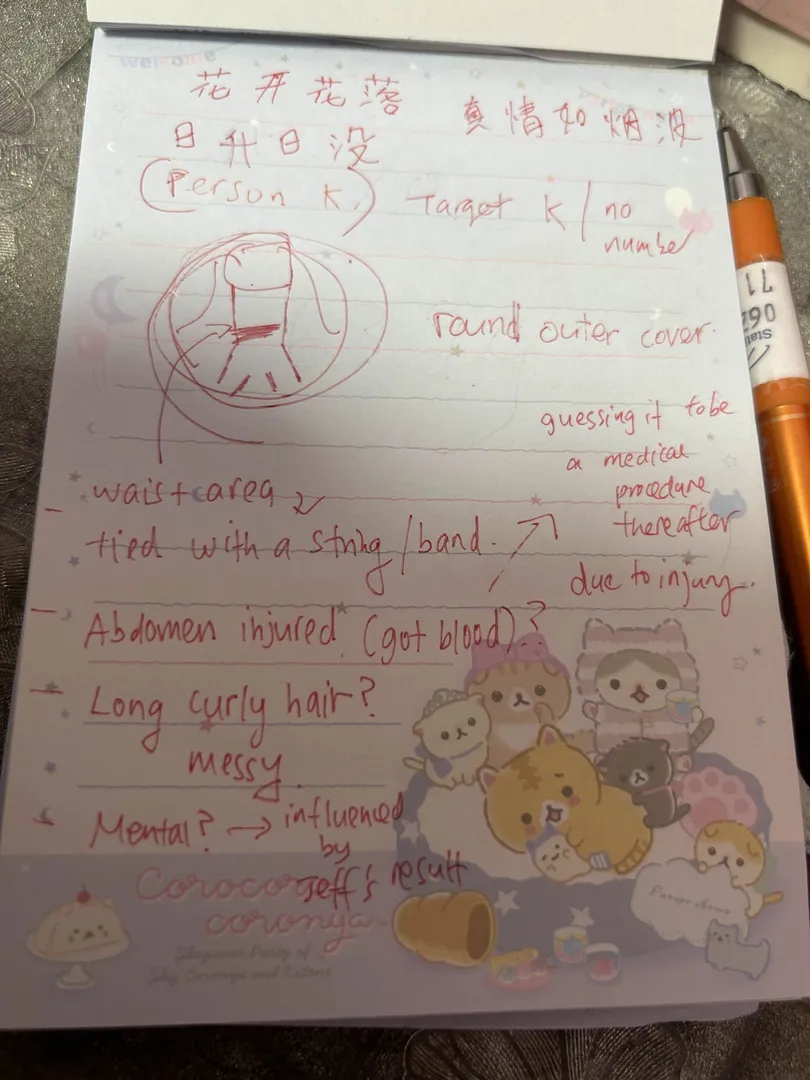 welcome
花开花落 真情如烟没
日升日没
(Person K.) Target K / no number
round outer cover.
guessing it to be
a medical
procedure
thereafter
due to injury.
- waist area
tied with a string / band.
- Abdomen injured (got blood)?
- Long curly hair?
messy
- Mental? → influenced
by
Jeff's result
Corocoro
coronya
Sleepover Party of
Shy Coronya and Kittens